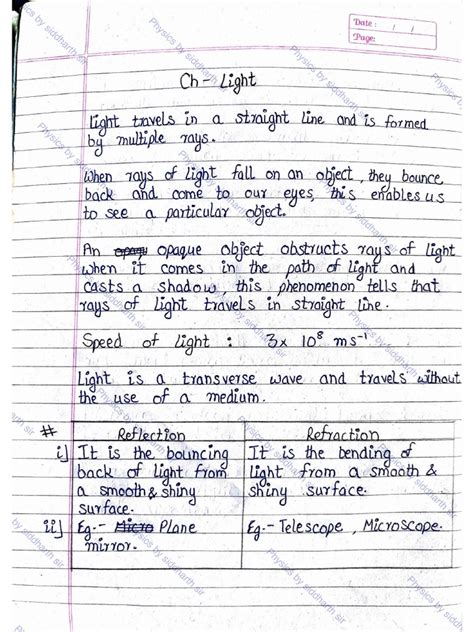 Date : / /
Page:
Ch - Light
Light travels in a straight line and is formed
by multiple rays.
When rays of light fall on an object, they bounce
back and come to our eyes, this enables us
to see a particular object.
An opaqu opaque object obstructs rays of light
when it comes in the path of light and
casts a shadow, this phenomenon tells that
rays of light travels in straight line.
Speed of light : 3x 10⁸ ms⁻¹
Light is a transverse wave and travels without
the use of a medium.
# Reflection Refraction
i] It is the bouncing It is the bending of
back of light from light from a smooth &
a smooth & shiny shiny surface.
surface.
ii] Eg.- Micro Plane Eg.- Telescope, Microscope.
mirror.
Physics by siddharth sir